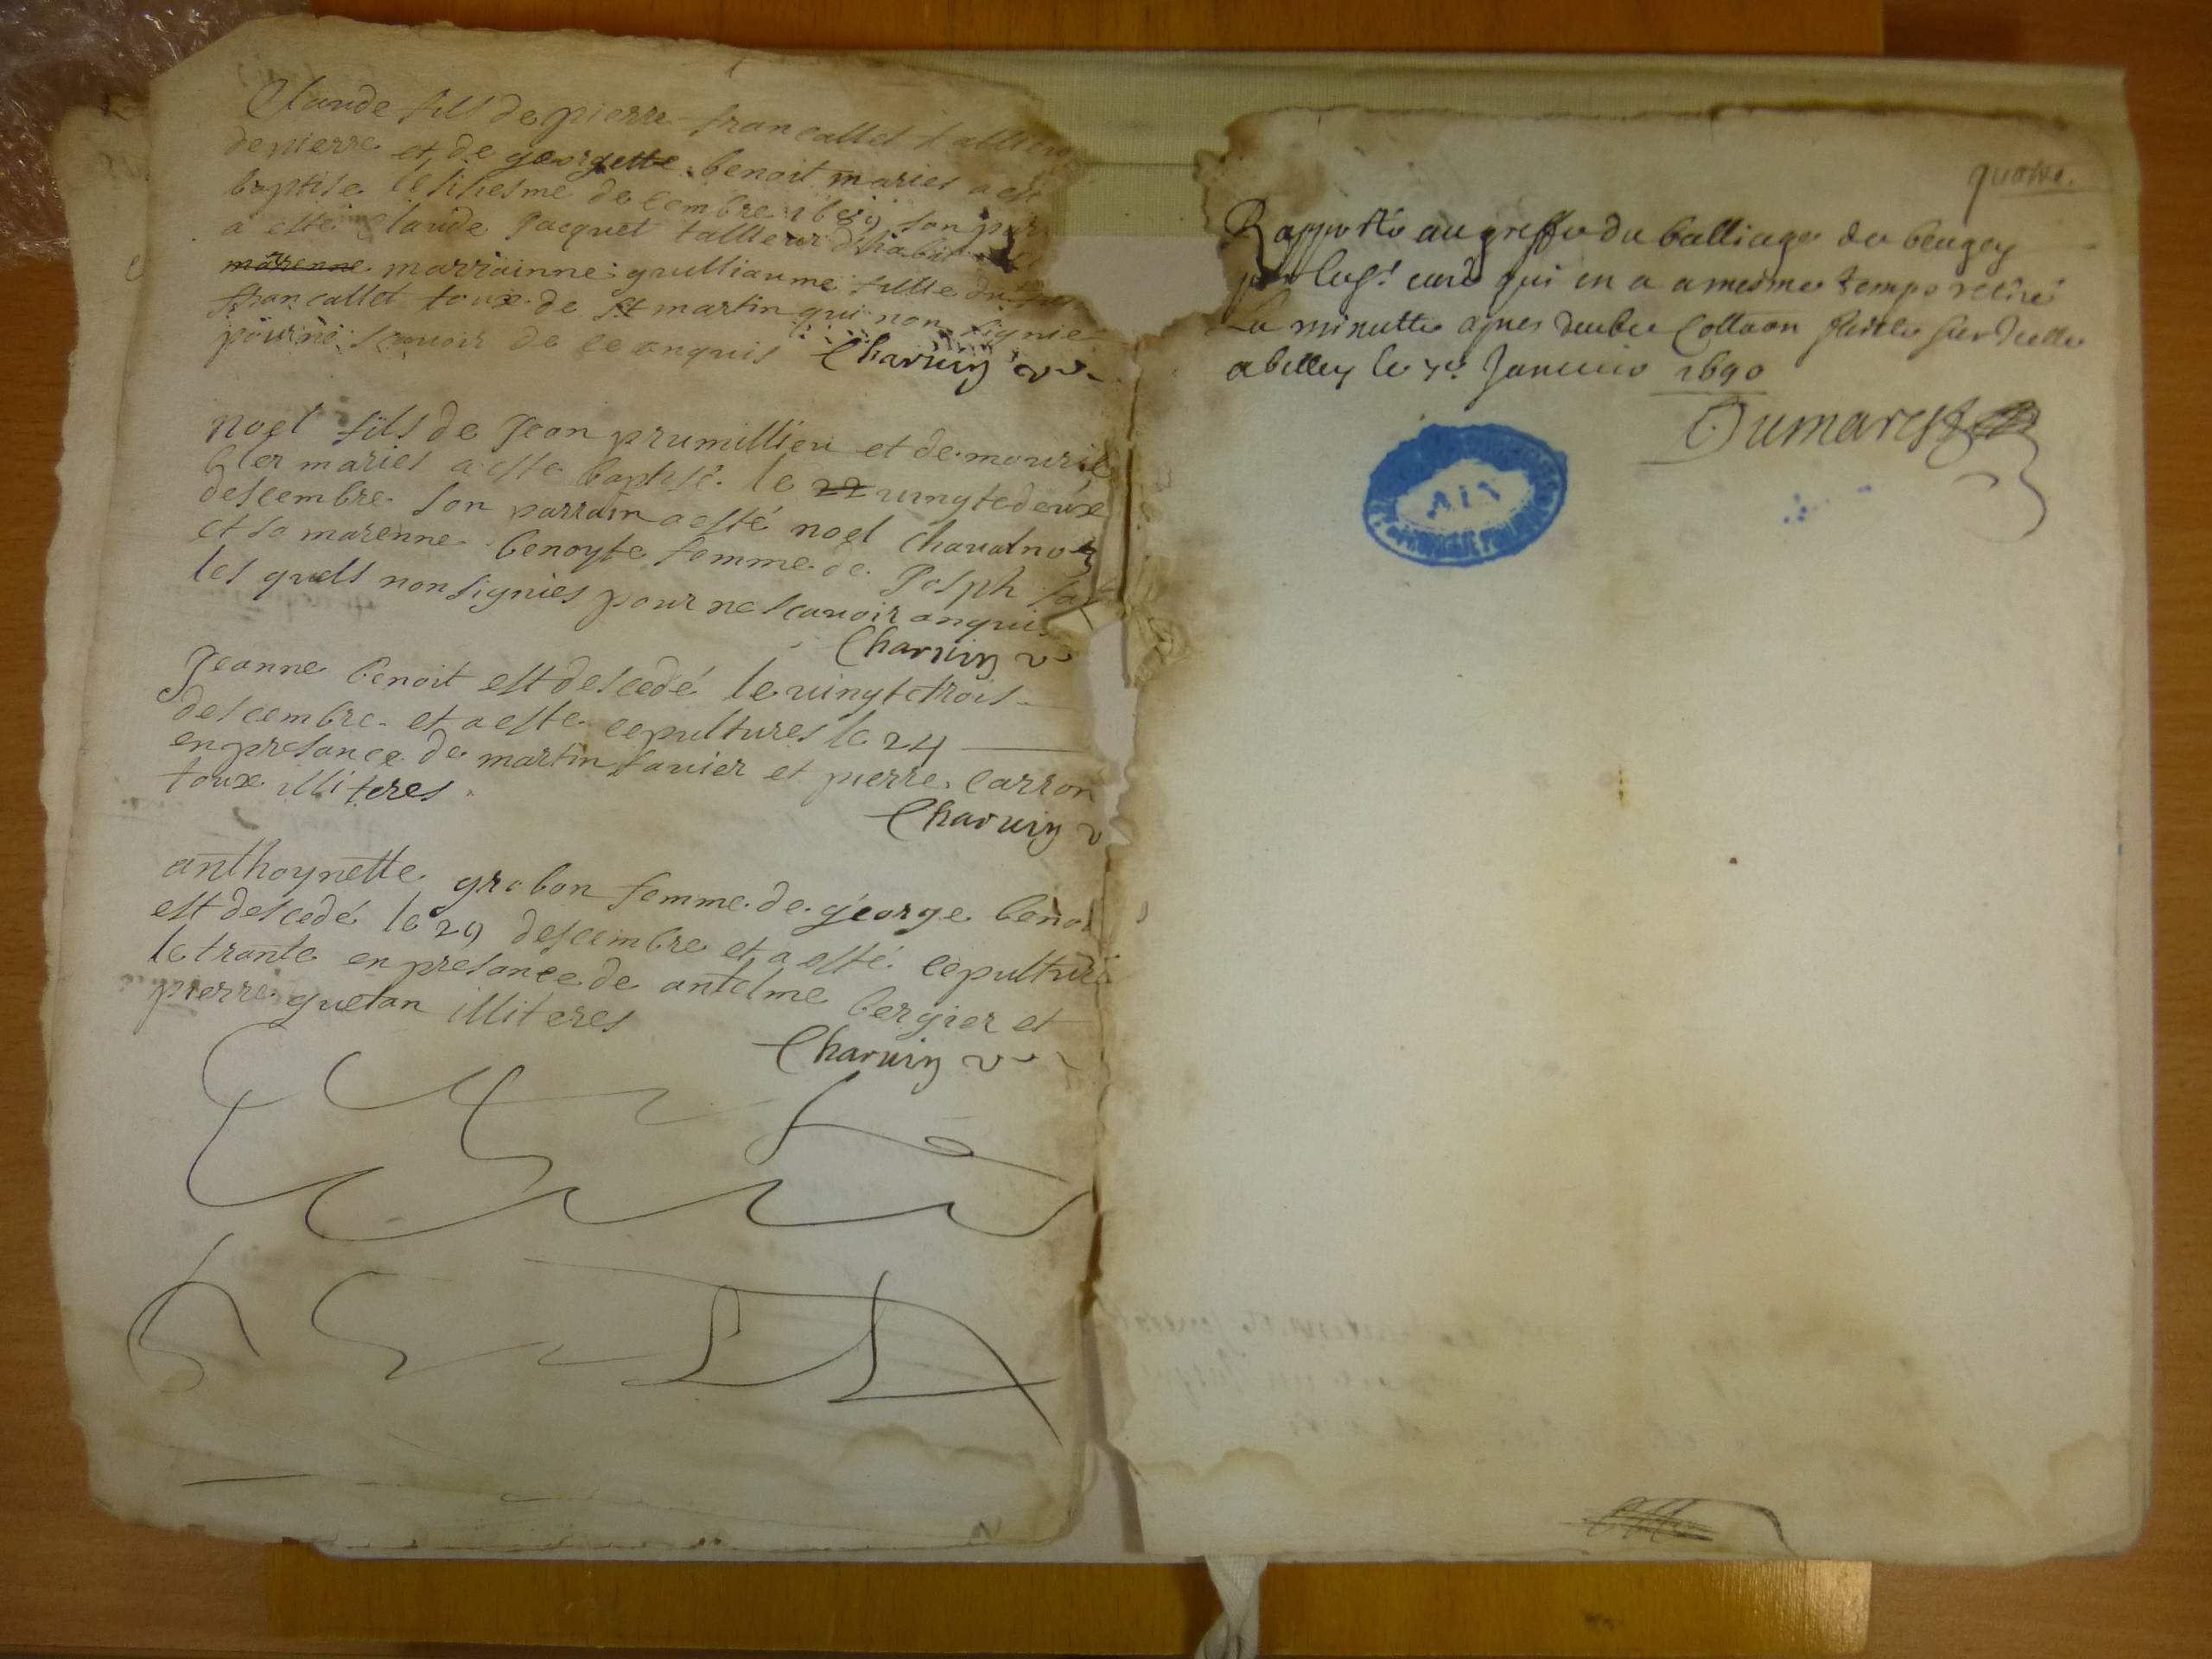 Claude fils de pierre francallet tallieur
de pierre et de georgette benoit maries a esté
baptise le sixesme decembre 1689 son
a esté claude Jacquet tallieur dhabit
marenne marrainne guilliaume fille du
francallet toux de st martin qui non signie
pour ne scavoir de ce anquis Charvin
noel fils de Jean prumillieu et de
maries a esté baptisé le 22 vingtedeux
descembre son parrain a esté noel
et sa marenne benoyte femme de Josph
les quels non signies pour ne scavoir anquis
Charvin
Jeanne benoit est descedé le vingtetrois
descembre et a esté cepultures le 24
en presance de martin favier et pierre carron
toux illiteres
Charvin
anthoynette grobon femme de george benoi
est descedé le 29 descembre et a esté cepulturé
le trante en presance de antelme bergier et
pierre guetan illiteres
Charvin
quatre.
Rapporté au greffe du balliage de beugey
par led.t curé qui en a a mesme temps retiré
La minutte apres deube collaon faitte sur
a belley le 7e Janvier 1690
Dumarest
AIN